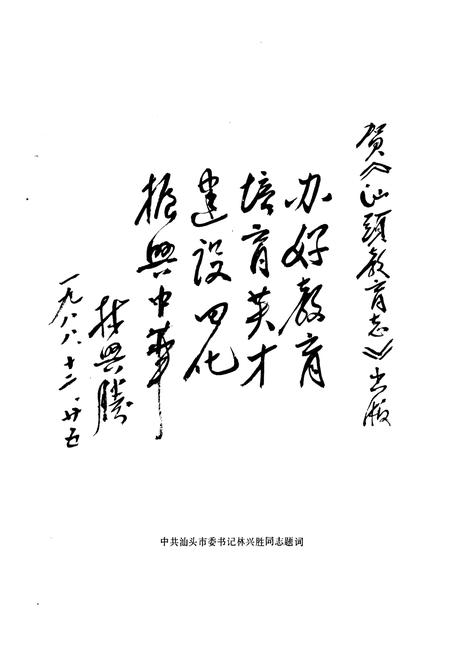 贺《汕頭教育志》出版
办好教育
培育英才
建设四化
振興中華
林興勝
一九八八、十二、廿五
中共汕头市委书记林兴胜同志题词